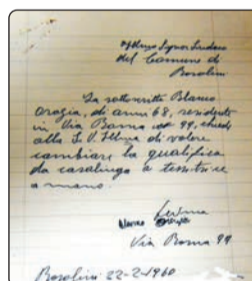 Ill.mo Signor Sindaco
del Comune di
Rosolini
La sottoscritta Blanco
Orazia, di anni 68, residente
in Via Roma n° 99, chiede
alla S. V. Ill.ma di volere
cambiare la qualifica
da casalinga a tessitrice
a mano.
Via Roma 99
Rosolini 22-2-1960